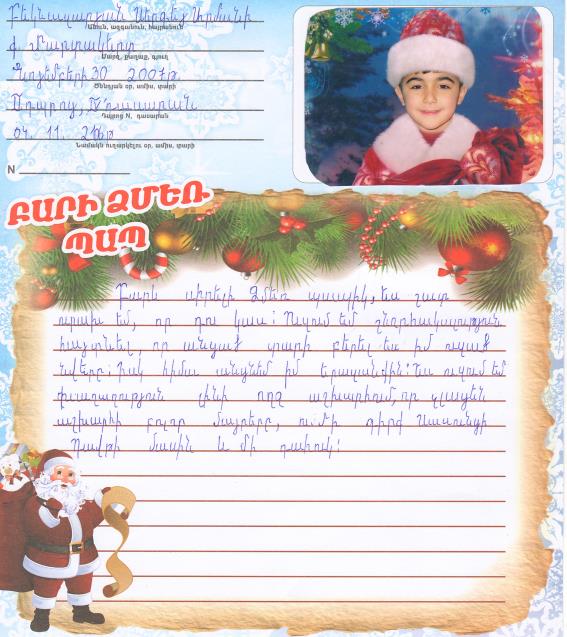 Բեկնազարյան Սերգեյ Արմանի
Անուն, ազգանուն, հայրանուն
ք. Մարտակերտ
Մարզ, քաղաք, գյուղ
Դեկտեմբերի 30 2007թ.
Ծննդյան օր, ամիս, տարի
Դպրոց, դասարան
Դպրոց N, դասարան
04. 11. 2016թ
Նամակն ուղարկելու օր, ամիս, տարի
N
ԲԱՐԻ ՁՄԵՌ
ՊԱՊ
Բարև սիրելի Ձմեռ պապիկ, ես շատ
ուրախ եմ, որ դու կաս: Ուզում եմ շնորհակալություն
հայտնել, որ անցած տարի բերել ես իմ ուզած
նվերը: Իսկ հիմա անցնեմ իմ երազանքին: Ես ուզում եմ
խաղաղություն լինի ողջ աշխարհում, որ չլացեն
աշխարհի բոլոր մայրերը, ու մի գիրք Սասունցի
Դավթի մասին և մի դահուկ: